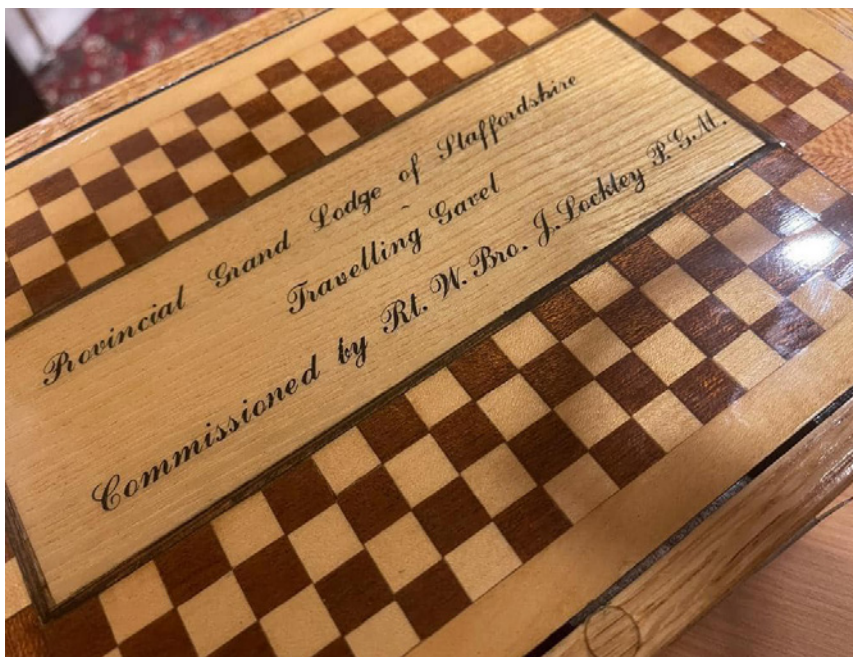 Provincial Grand Lodge of Staffordshire
~
Travelling Gavel
Commissioned by Rt. W. Bro. J. Lockley P.G.M.